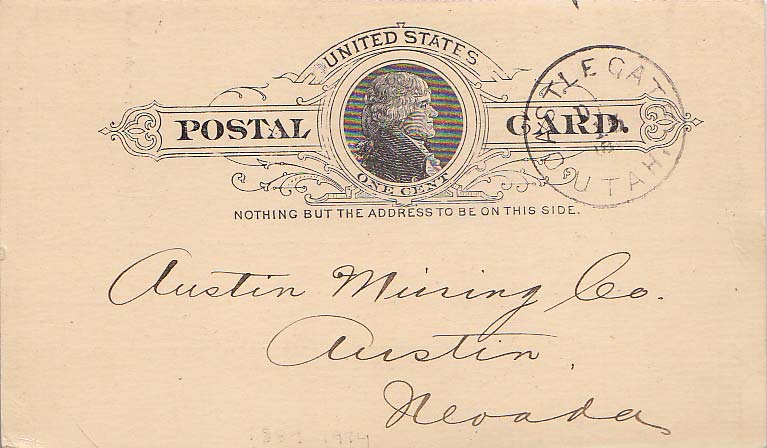 UNITED STATES
POSTAL CARD.
ONE CENT
NOTHING BUT THE ADDRESS TO BE ON THIS SIDE.
CASTLE GATE
UTAH.
Austin Mining Co.
Austin,
Nevada